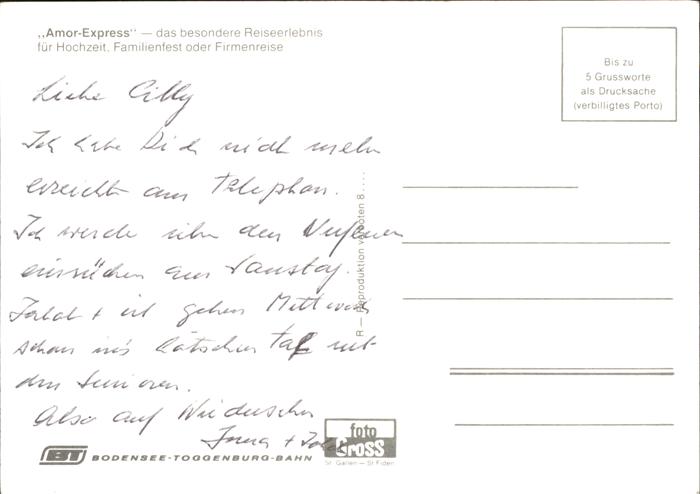 „Amor-Express" — das besondere Reiseerlebnis
für Hochzeit, Familienfest oder Firmenreise
Bis zu
5 Grussworte
als Drucksache
(verbilligtes Porto)
Liebe Cilly
Ich habe Dich nicht mehr
erreicht am Telephon.
Ich werde über den Nufenen
einrücken am Samstag.
+ ich gehen Mittwoch
schon ins Lötschen Tal mit
den Senioren.
Also auf Wiedersehen
Irma +
R — Reproduktion verboten 8....
BT BODENSEE-TOGGENBURG-BAHN
foto
Gross
St. Gallen – St. Fiden